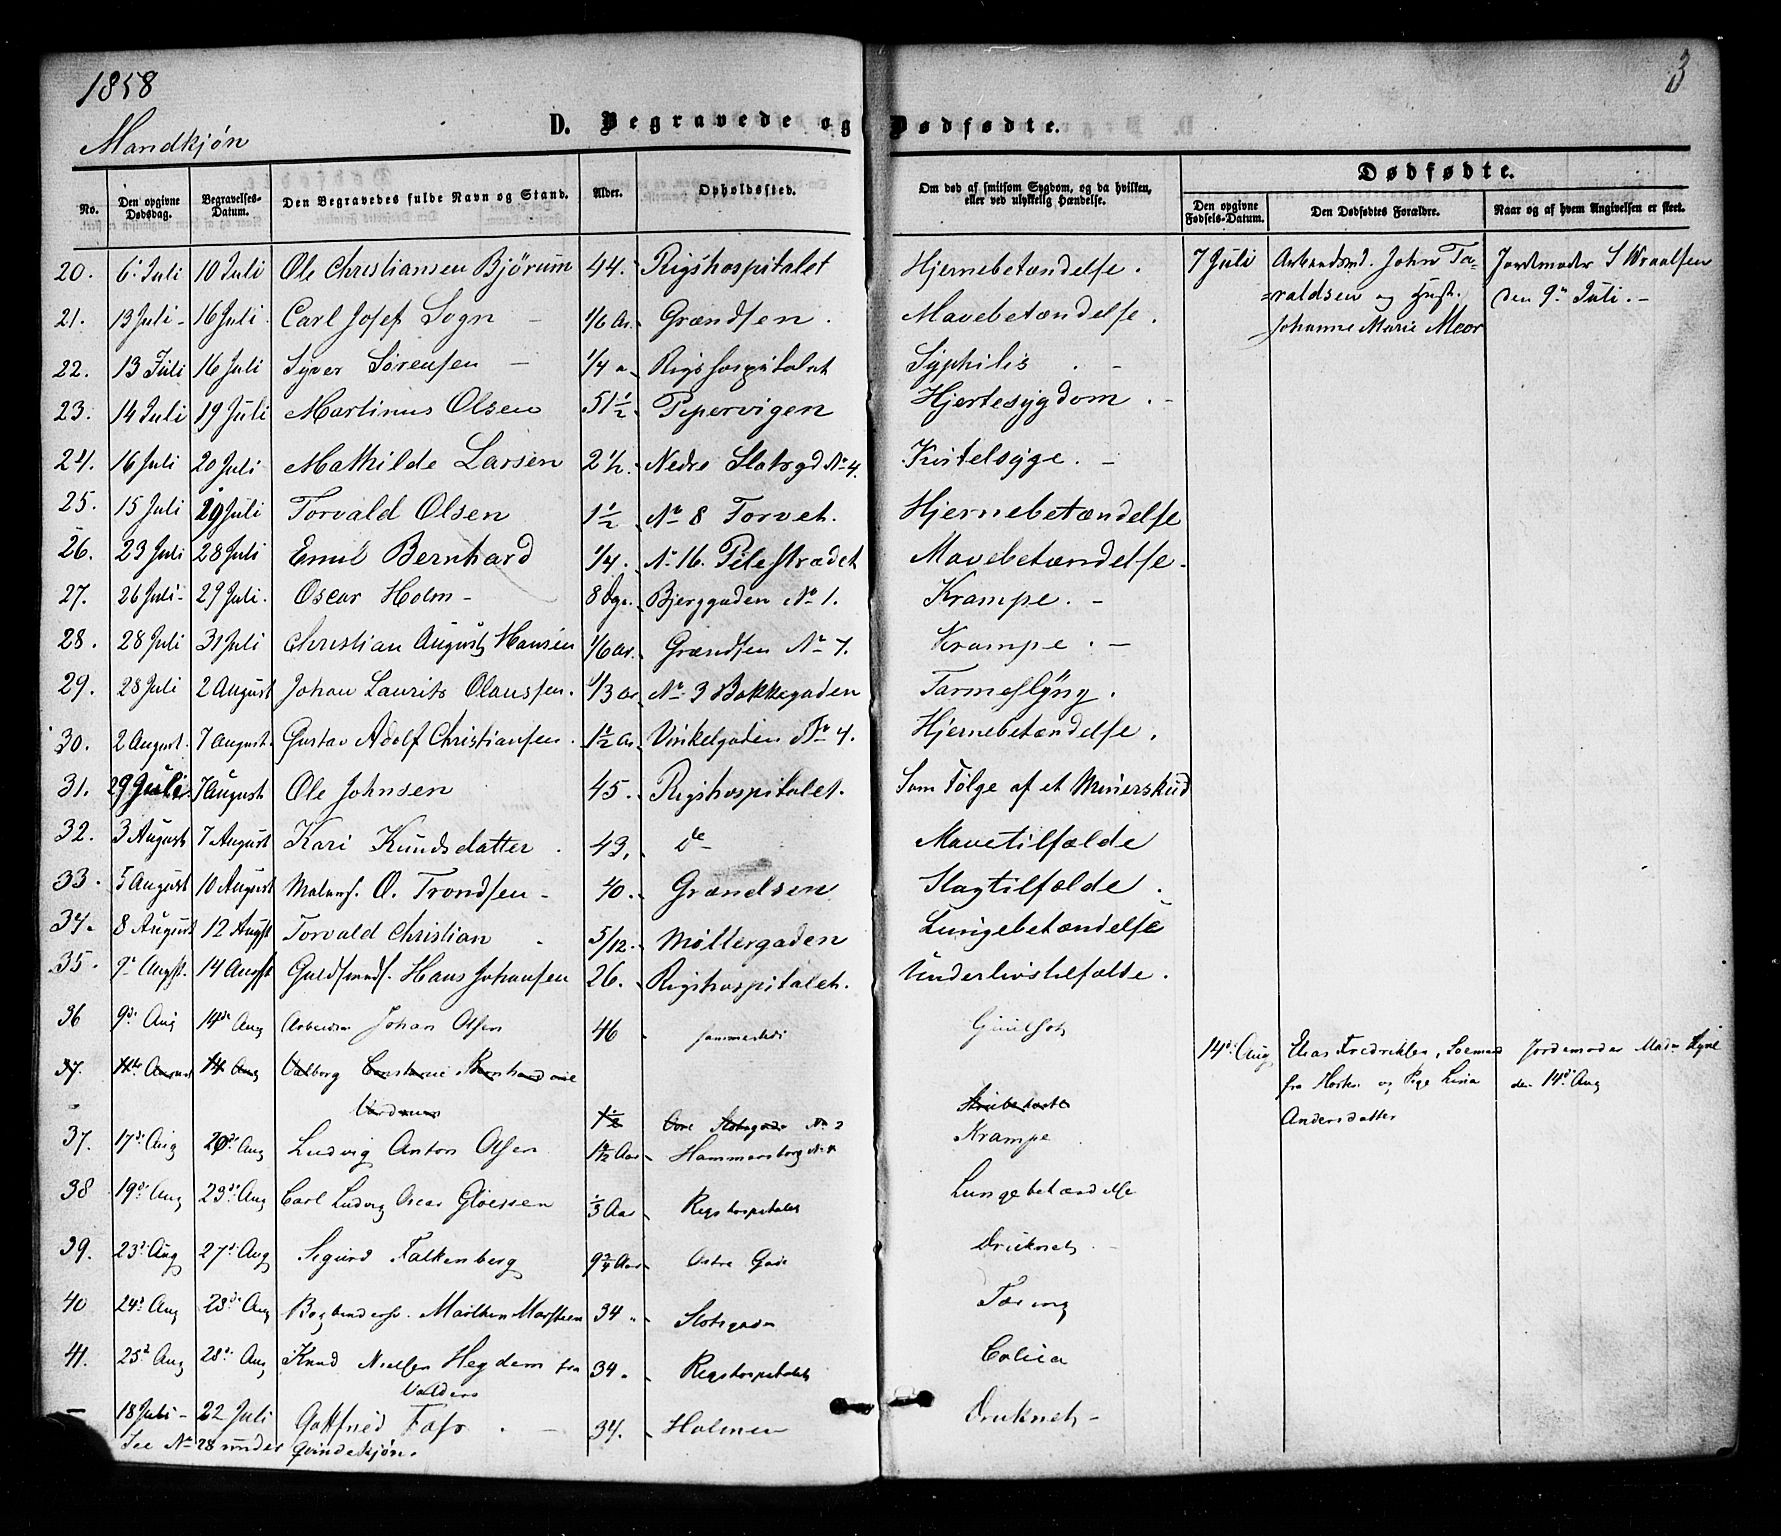 1858
3
Mandkjøn
D. Begravede og Dødfødte.
No. Den opgivne Dødsdag. Begravelses-Datum. Den Begravedes fulde Navn og Stand. Alder. Opholdssted. Om død af smitsom Sygdom, og da hvilken, eller ved ulykkelig Hændelse. Dødfødte.
Den opgivne Fødsels-Datum. Den Dødfødtes Forældre. Naar og af hvem Angivelsen er skeet.
20. 6 Juli 10 Juli Ole Christiansen Bjørum 44. Rigshospitalet Hjernebetændelse. 7 Juli Arbeidsmd. John Ta- Jordemoder S
=raldsen og Hust. den 9 Juli. -
21. 13 Juli - 16 Juli. Carl Josef Sogn - 1/6 Ar. Grændsen. Mavebetændelse. Johanne Marie Meor
22. 13 Juli 16 Juli Syver Sørensen - 1/4 Rigshospitalet Syphilis. -
23. 14 Juli 19 Juli Martinus Olsen 51 1/2 Pipervigen Hjertesygdom. -
24. 16 Juli 20 Juli Mathilde Larsen 2 1/2. Nedre Slotsgd No 4. -
25. 15 Juli 20 Juli Torvald Olsen 1 1/2 No 8 Torvet. Hjernebetændelse
26. 23 Juli 28 Juli Emil Bernhard 1/4. No 16. Pilestrædet Mavebetændelse.
27. 26 Juli - 29 Juli. Oscar Holm - 8 Dge. Bjerggaden No 1. Krampe. -
28. 28 Juli 31 Juli Christian August Hansen 1/6 Ar. Grændsen No 7. Krampe. -
29. 28 Juli 2 August Johan Laurits Olaussen. 1/3 Ar No 3 Bakkegaden Tarmeslyng.
30. 2 August. 7 August. Gustav Adolf Christiansen. 1 1/2 Ar. Vinkelgaden No 4. Hjernebetændelse.
31. 29 Juli. 7 August Ole Johnsen 45. Rigshospitalet. Som Følge af et Minerskud
32. 3 August 7 August Kari Knudsdatter. 43. do Mavetilfælde
33. 5 August 10 August Malersv. O. Trondsen - 40. Grændsen Slagtilfælde.
34. 8 August 12 Augst Torvald Christian 5/12. Møllergaden Lungebetændelse
35. 9 Augst. 14 Augst Guldsmeds. Hans Johansen 26. Rigshospitalet. Underlivstilfælde.
36 9de Aug 14de Aug Arbeidsm Johan Olsen 46 sammesteds Guulsot
37. 11te 14 Aug Valborg Constance Bernhardine 14de Aug Elias Fredriksen, Soemand Jordemoder Madm
fra Horten og Pige Lina den 14de Aug
1 1/2 Øvre Slotsgade No 2 Andersdatter
37. 17de Aug 20de Aug Ludvig Anton Olsen 1 Aar Hammersborg Krampe
38 19de Aug 23de Aug Carl Ludvig Oscar Gløersen 1/3 Aar Rigshospitalet Lungebetændelse
39. 23de Aug 27de Aug Sigurd Falkenberg 9 3/4 Aar Østre Gade Druknet
40 24de Aug 28de Aug Bogbindersv. Marsteen 34 Slotsgaden Tæring
41. 25de Aug 28de Aug Knud Nielsen Hegdem fra 34. Rigshospitalet Colica
Valders
- 18 Juli - 22 Juli Gottfried Fafs. - 34. Holmen Druknet -
See No 28 under Qvindekjøn.